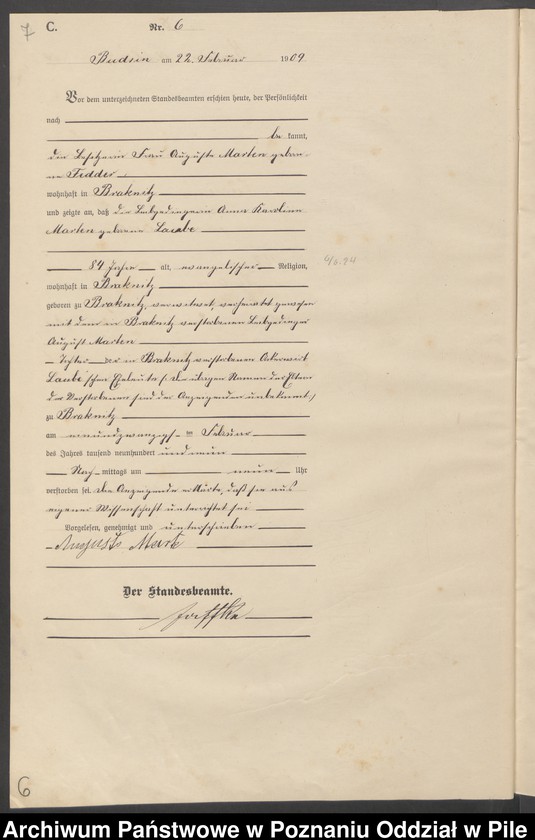 7
C.
Nr. 6
Budsin am 22. Februar 1909
Vor dem unterzeichneten Standesbeamten erschien heute, der Persönlichkeit
nach
be kannt,
die Besitzerin Frau Auguste Marten gebore-
ne Fedder
wohnhaft in Braknitz
und zeigte an, daß die Leibgedingerin Anna Karoline
Marten geborene Laube
84 Jahre alt, evangelischer Religion,
4/6.24
wohnhaft in Braknitz
geboren zu Braknitz, verwitwet, verheiratet gewesen
mit dem in Braknitz verstorbenen Leibgedinger
August Marten
Tochter der in Braknitz verstorbenen Ackerwirt
Laube'schen Eheleute (: die übrigen Namen der Eltern
der Verstorbenen sind der Anzeigenden unbekannt :)
zu Braknitz
am einundzwanzigsten Februar
des Jahres tausend neunhundert und neun
Nach mittags um neun Uhr
verstorben sei. Die Anzeigende erklärte, daß sie aus
eigener Wissenschaft unterrichtet sei
Vorgelesen, genehmigt und unterschrieben
Auguste Marten
Der Standesbeamte.
6
Archiwum Państwowe w Poznaniu Oddział w Pile